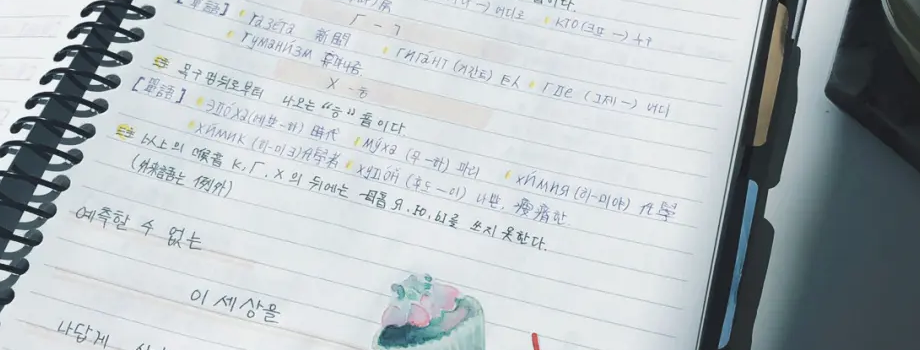 [單語]
КТО (크또 –) 누구
Г – ㄱ
газета 新聞
гигант (기간트) 巨人
где (그제 –) 어디
гуманизм
Х – ㅎ
목구멍뒤로부터 나오는 "흐" 音이다.
[單語] эпоха (에뽀–하) 時代
муха (무–하) 파리
химия (히–미야) 化學
химик (히–미크) 化學者
худой (후도–이) 나쁜,
以上의 喉音 К, Г, Х 의 뒤에는 母音 Я, Ю, Ы를 쓰지 못한다.
(外來語는 例外)
예측할 수 없는
이 세상을
나답게